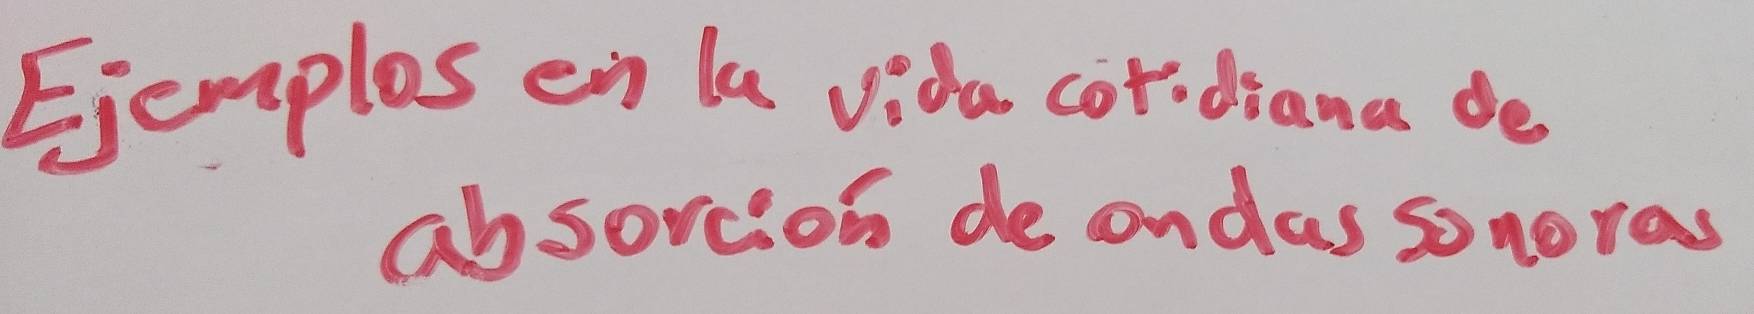 Ejemplos en la vida cotidiana de
absorción de ondas sonoras